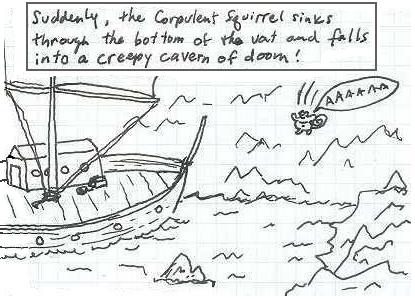 Suddenly, the Corpulent Squirrel sinks
through the bottom of the vat and falls
into a creepy cavern of doom!
AAAAAA